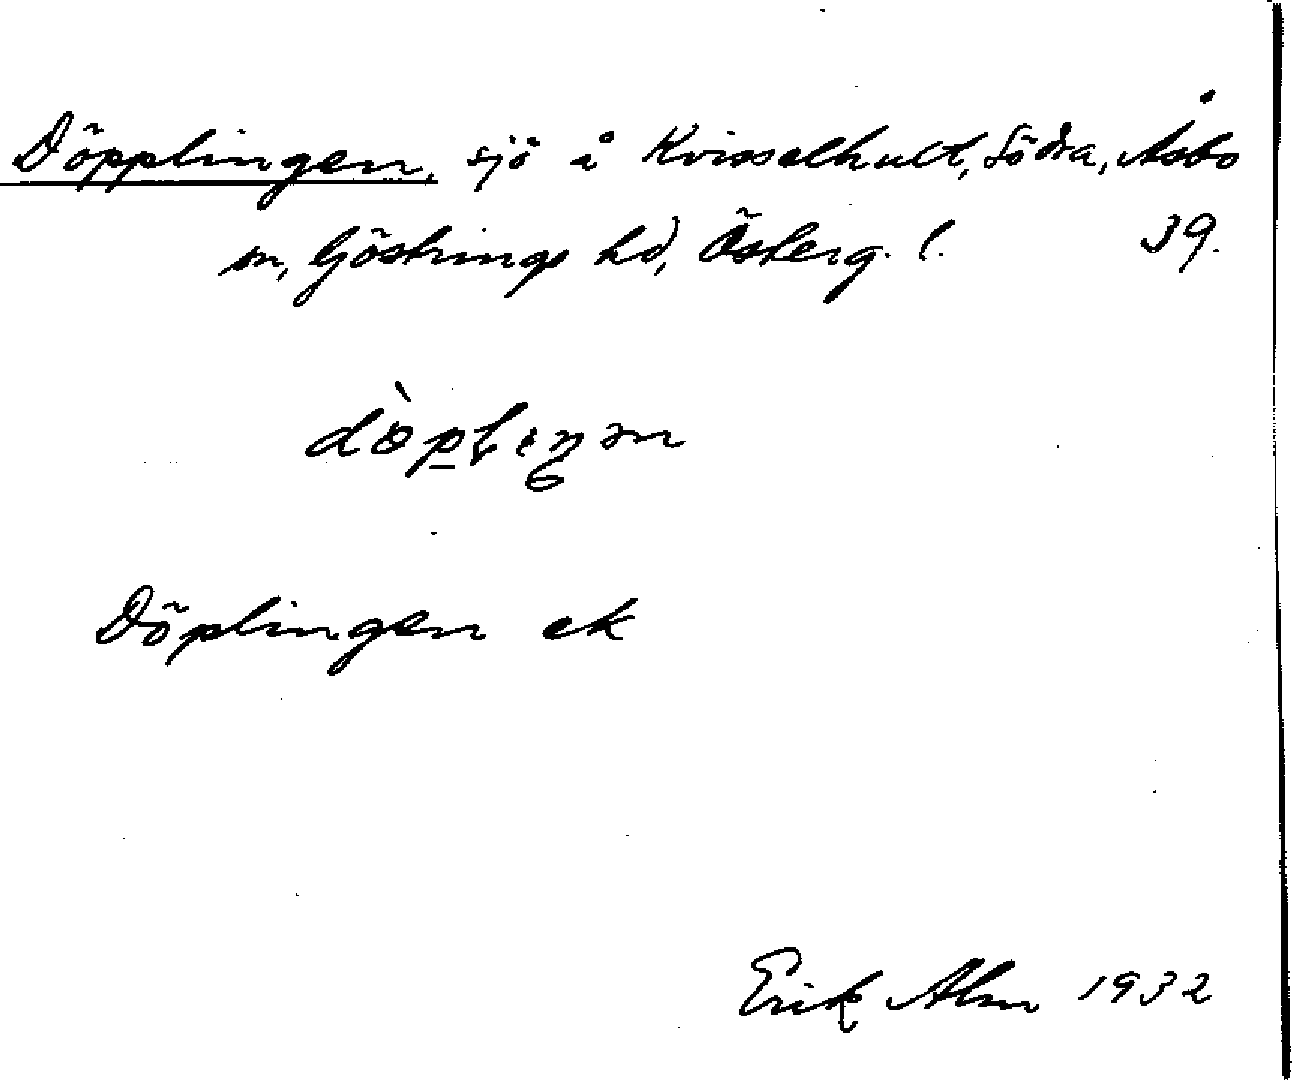 Döpplingen, sjö å Kvisselhult, Södra, Åsbo
sn, Göstrings hd, Österg. l. 39.
Döplingen ek
Erik Alm 1932